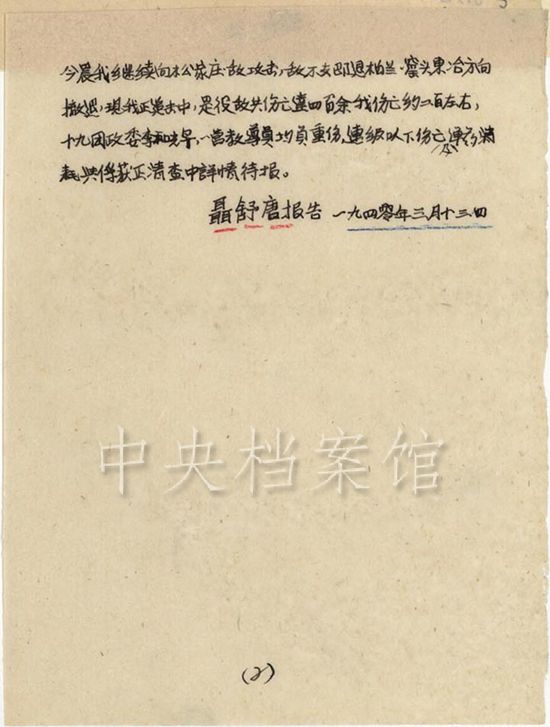 今晨我继续向松家庄敌攻击，敌不支即退柏兰、窑头东冶方向
撤退，现我正追击中，是役敌共伤亡达四百余我伤亡约二百左右，
十九团政委李和光早，一营教导员均负重伤，连级以下伤亡及弹药消
耗与俘获正清查中詳情待报。
聶舒唐报告 一九四〇年三月十三日
中央档案馆
(2)